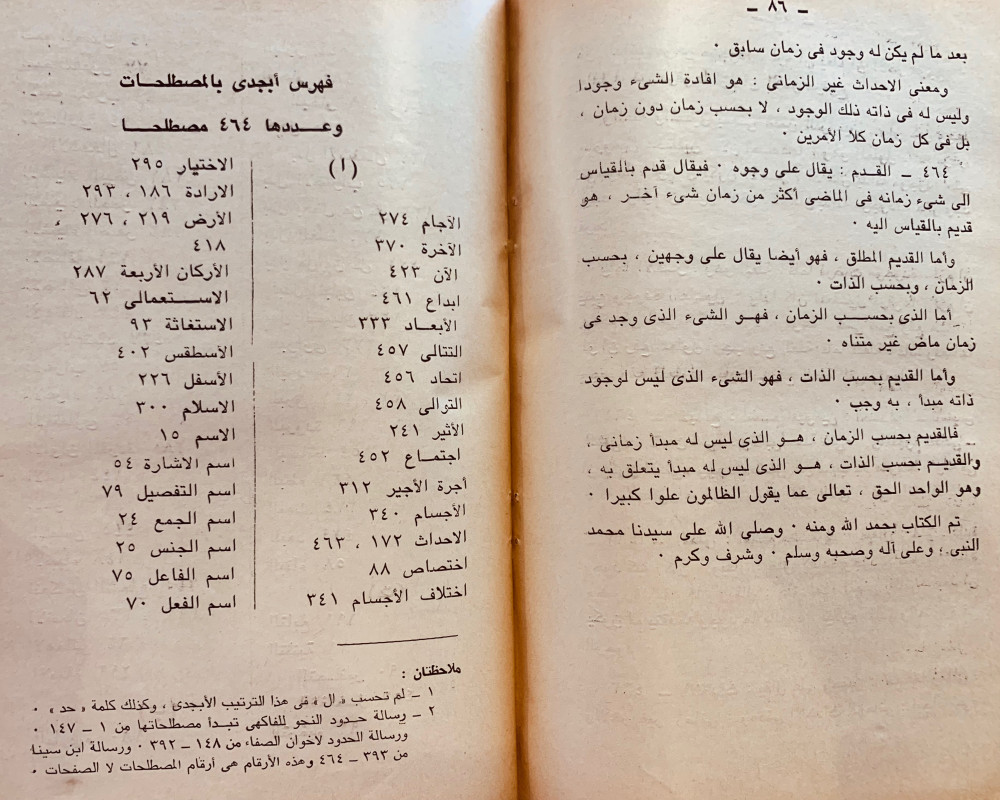 ـ ٨٦ ـ
بعد ما لم يكن له وجود فى زمان سابق ٠
ومعنى الاحداث غير الزمانى : هو افادة الشىء وجودا
وليس له فى ذاته ذلك الوجود ، لا بحسب زمان دون زمان ،
بل فى كل زمان كلا الأمرين ٠
٤٦٤ ـ القـدم : يقال على وجوه ٠ فيقال قدم بالقياس
الى شىء زمانه فى الماضى أكثر من زمان شىء آخـر ، هو
قديم بالقياس اليه ٠
وأما القديم المطلق ، فهو أيضا يقال على وجهين ، بحسب
الزمان ، وبحسب الذات ٠
أما الذى بحسـب الزمان ، فهـو الشىء الذى وجد فى
زمان ماض غير متناه ٠
وأما القديم بحسب الذات ، فهو الشىء الذى ليس لوجود
ذاته مبدأ ، به وجب ٠
فالقديم بحسب الزمان ، هـو الذى ليس له مبدأ زمانى ،
والقديـم بحسب الذات ، هـو الذى ليس له مبدأ يتعلق به ،
وهو الواحد الحق ، تعالى عما يقول الظالمون علوا كبيرا ٠
تم الكتاب بحمد الله ومنه ٠ وصلى الله على سيدنا محمد
النبى ، وعلى آله وصحبه وسلم ٠ وشرف وكرم ٠
فهرس أبجدى بالمصطلحـات
وعـددها ٤٦٤ مصطلحـا
( ا )
الآجام ٢٧٤
الآخرة ٣٧٠
الآن ٤٢٣
ابداع ٤٦١
الأبعـاد ٣٣٣
التتالى ٤٥٧
اتحاد ٤٥٦
التوالى ٤٥٨
الأثير ٢٤١
اجتمـاع ٤٥٢
أجرة الأجير ٣١٢
الأجسام ٣٤٠
الاحداث ١٧٢ ، ٤٦٣
اختصاص ٨٨
اختلاف الأجسام ٣٤١
الاختيار ٢٩٥
الارادة ١٨٦ ، ٢٩٣
الأرض ٢١٩ ، ٢٧٦ ،
٤١٨
الأركان الأربعة ٢٨٧
الاسـتعمالى ٦٢
الاستغاثة ٩٣
الأسطقس ٤٠٢
الأسفل ٢٢٦
الاسلام ٣٠٠
الاسم ١٥
اسم الاشارة ٥٤
اسم التفصيل ٧٩
اسم الجمع ٢٤
اسم الجنس ٢٥
اسم الفاعل ٧٥
اسم الفعل ٧٠
ملاحظتان :
١ ـ لم تحسب « ال » فى هذا الترتيب الأبجدى ، وكذلك كلمة « حد » ٠
٢ ـ رسالة حدود النحو للفاكهى تبـدأ مصطلحاتها من ١ ـ ١٤٧ ٠
ورسالة الحدود لاخوان الصفاء من ١٤٨ ـ ٣٩٢ ٠ ورسالة ابن سينا
من ٣٩٣ ـ ٤٦٤ وهذه الأرقام هى أرقام المصطلحات لا الصفحات ٠